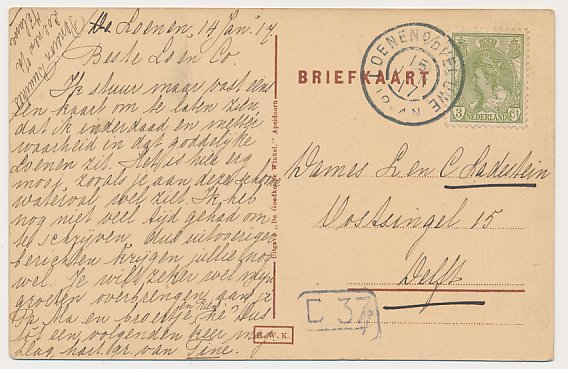 Loenen, 14 Jan. '17
Beste L en Co.
Ik stuur maar vast één
een kaart om te laten zien,
dat ik inderdaad en metter
waarheid in dat goddelijke
Loenen zit. Het is hier erg
mooi, zooals je aan deze
waterval wel ziet. Ik heb
nog niet veel tijd gehad om
te schrijven, dus uitvoeriger
berichten krijgen jullie nog
wel. Je wilt zeker wel mijn
groeten overbrengen aan je
Pa Ma en broertje, hè? Dus
tot een volgenden keer
dag, hart. gr. van Sine.
Uitgave „De Goedkoope Winkel," Apeldoorn
R.W.K.
BRIEFKAART
LOENEN (OP VELUWE)
15
17
3 NEDERLAND Ct
Dames L en C Ladestein
Oostsingel 15
Delft
C 37